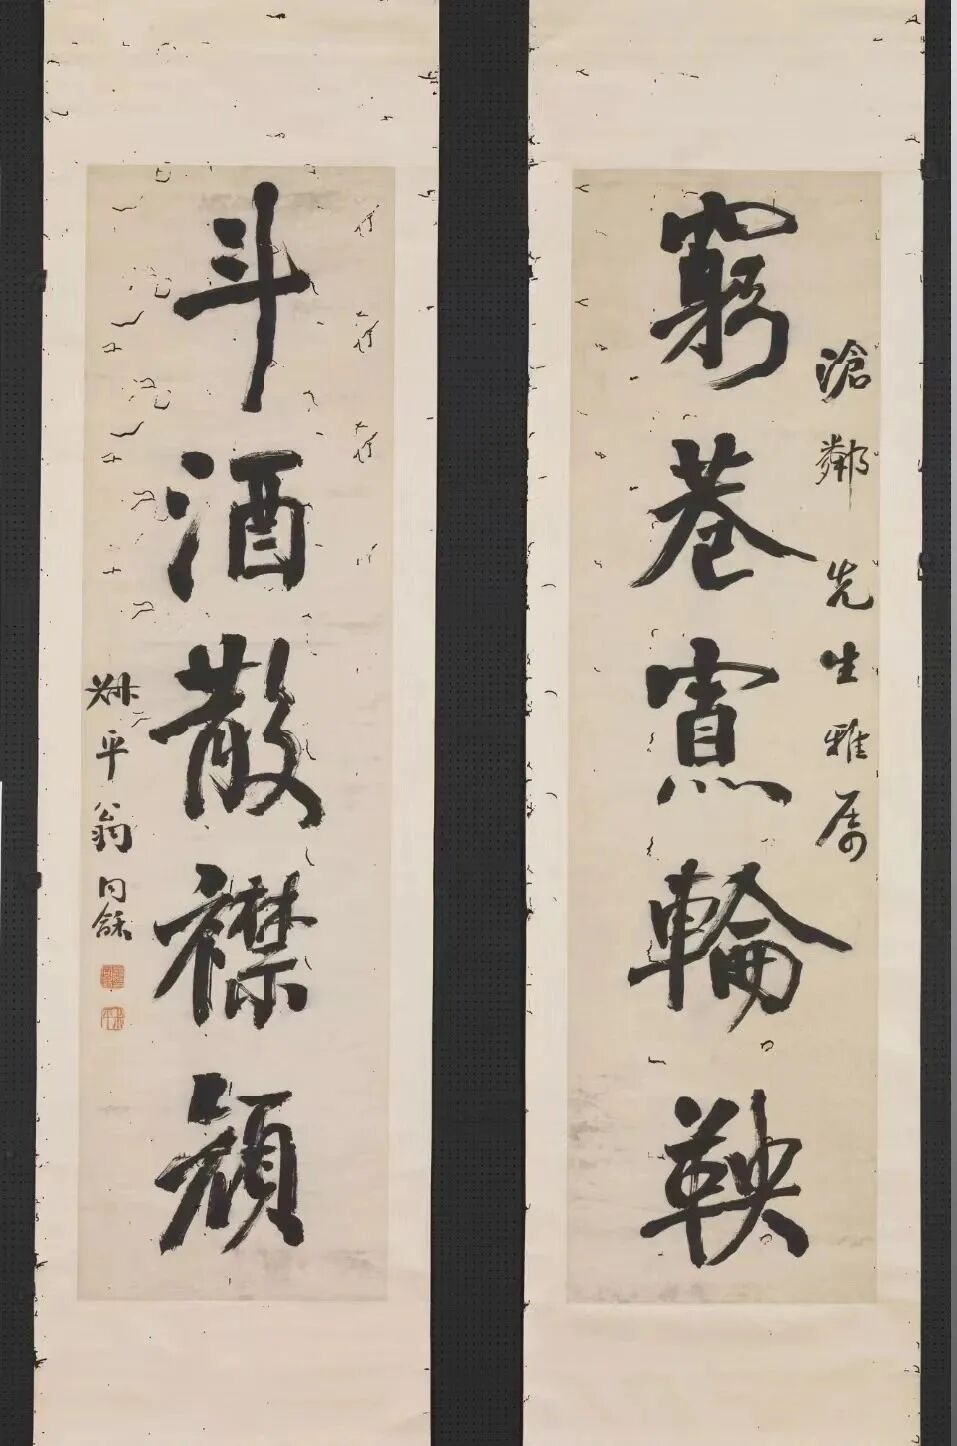 滄鄰先生雅属
窮巷寡輪鞅
斗酒散襟顏
叔平翁同龢
叔平